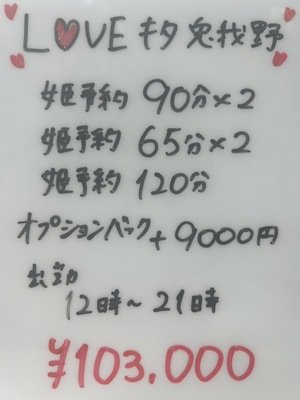 LOVEキタ兎我野
姫予約 90分×2
姫予約 65分×2
姫予約 120分
オプションバック+9000円
出勤
12時～21時
¥103.000